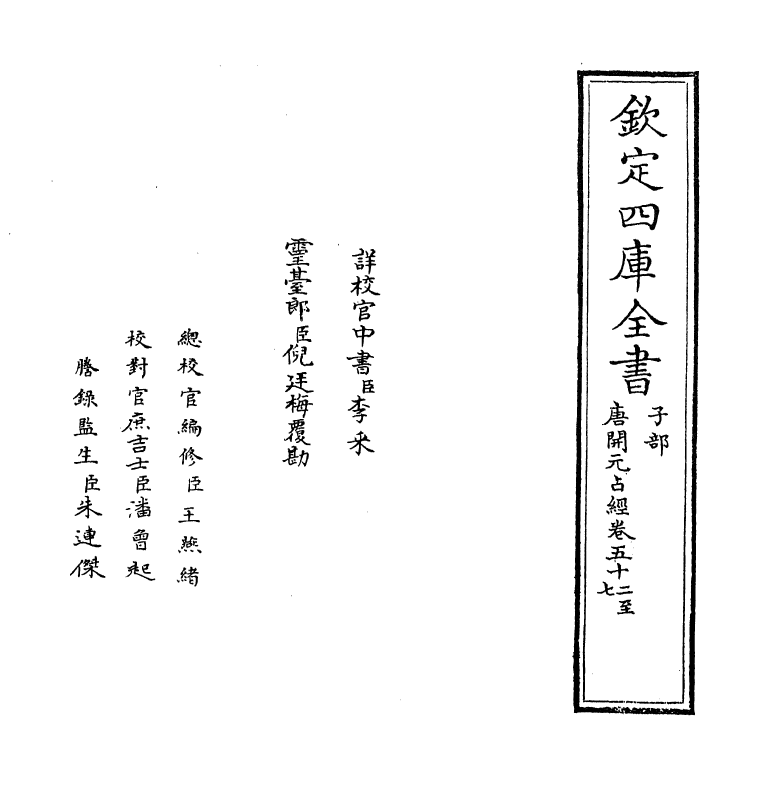 欽定四庫全書
子部
唐開元占經卷五十二至
七
詳校官中書臣李采
靈臺郎臣倪廷梅覆勘
總校官編修臣王燕緒
校對官庶吉士臣潘曾起
謄錄監生臣朱連傑